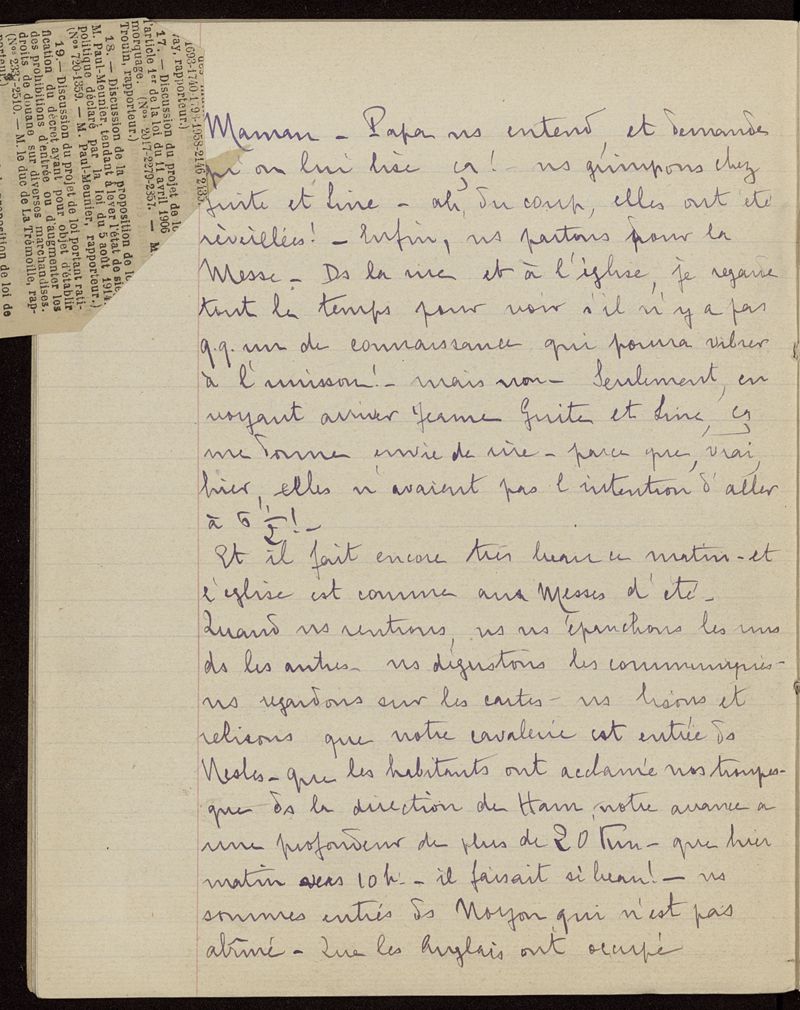 Maman – Papa ns entend, et demande
qu'on lui lise ça! – ns grimpons chez
Guite et Line – ah, du coup, elles ont été
réveillées! – Enfin, ns partons pour la
Messe – Ds la rue et à l'église, je regarde
tout le temps pour voir s'il n'y a pas
q.q. un de connaissance qui pourra vibrer
à l'unisson! – mais non – Seulement, en
voyant arriver Jeanne Guite et Line, ça
me donne envie de rire – parce que, vrai,
hier, elles n'avaient pas l'intention d'aller
à 5 1/2! –
Et il fait encore très beau ce matin – et
l'église est comme aux Messes d'été –
Quand ns rentrons, ns ns épanchons les uns
ds les autres – ns dégustons les communiqués –
ns regardons sur les cartes – ns lisons et
relisons que notre cavalerie est entrée ds
Nesles – que les habitants ont acclamé nos troupes –
que ds la direction de Ham, notre avance a
une profondeur de plus de 20 Km – que hier
matin vers 10 h. – il faisait si beau! – ns
sommes entrés ds Noyon qui n'est pas
abîmé – Que les Anglais ont occupé
1693-1740-1793-1958-2146-2185.
vay, rapporteur.)
17. – Discussion du projet de lo
l'article 1er de la loi du 11 avril 1906
morquage. (Nos 2017-2279-2357. – M.
Trouin, rapporteur.)
18. – Discussion de la proposition de lo
M. Paul-Meunier tendant à lever l'état de siè
politique déclaré par la loi du 5 août 1914.
(Nos 720-1359. – M. Paul-Meunier, rapporteur.)
19. – Discussion du projet de loi portant rati-
fication du décret ayant pour objet d'établir
des prohibitions d'entrée ou d'augmenter les
droits de douane sur diverses marchandises.
(Nos 2337-2510. – M. le duc de La Trémoille, rap-
porteur.)
proposition de loi de